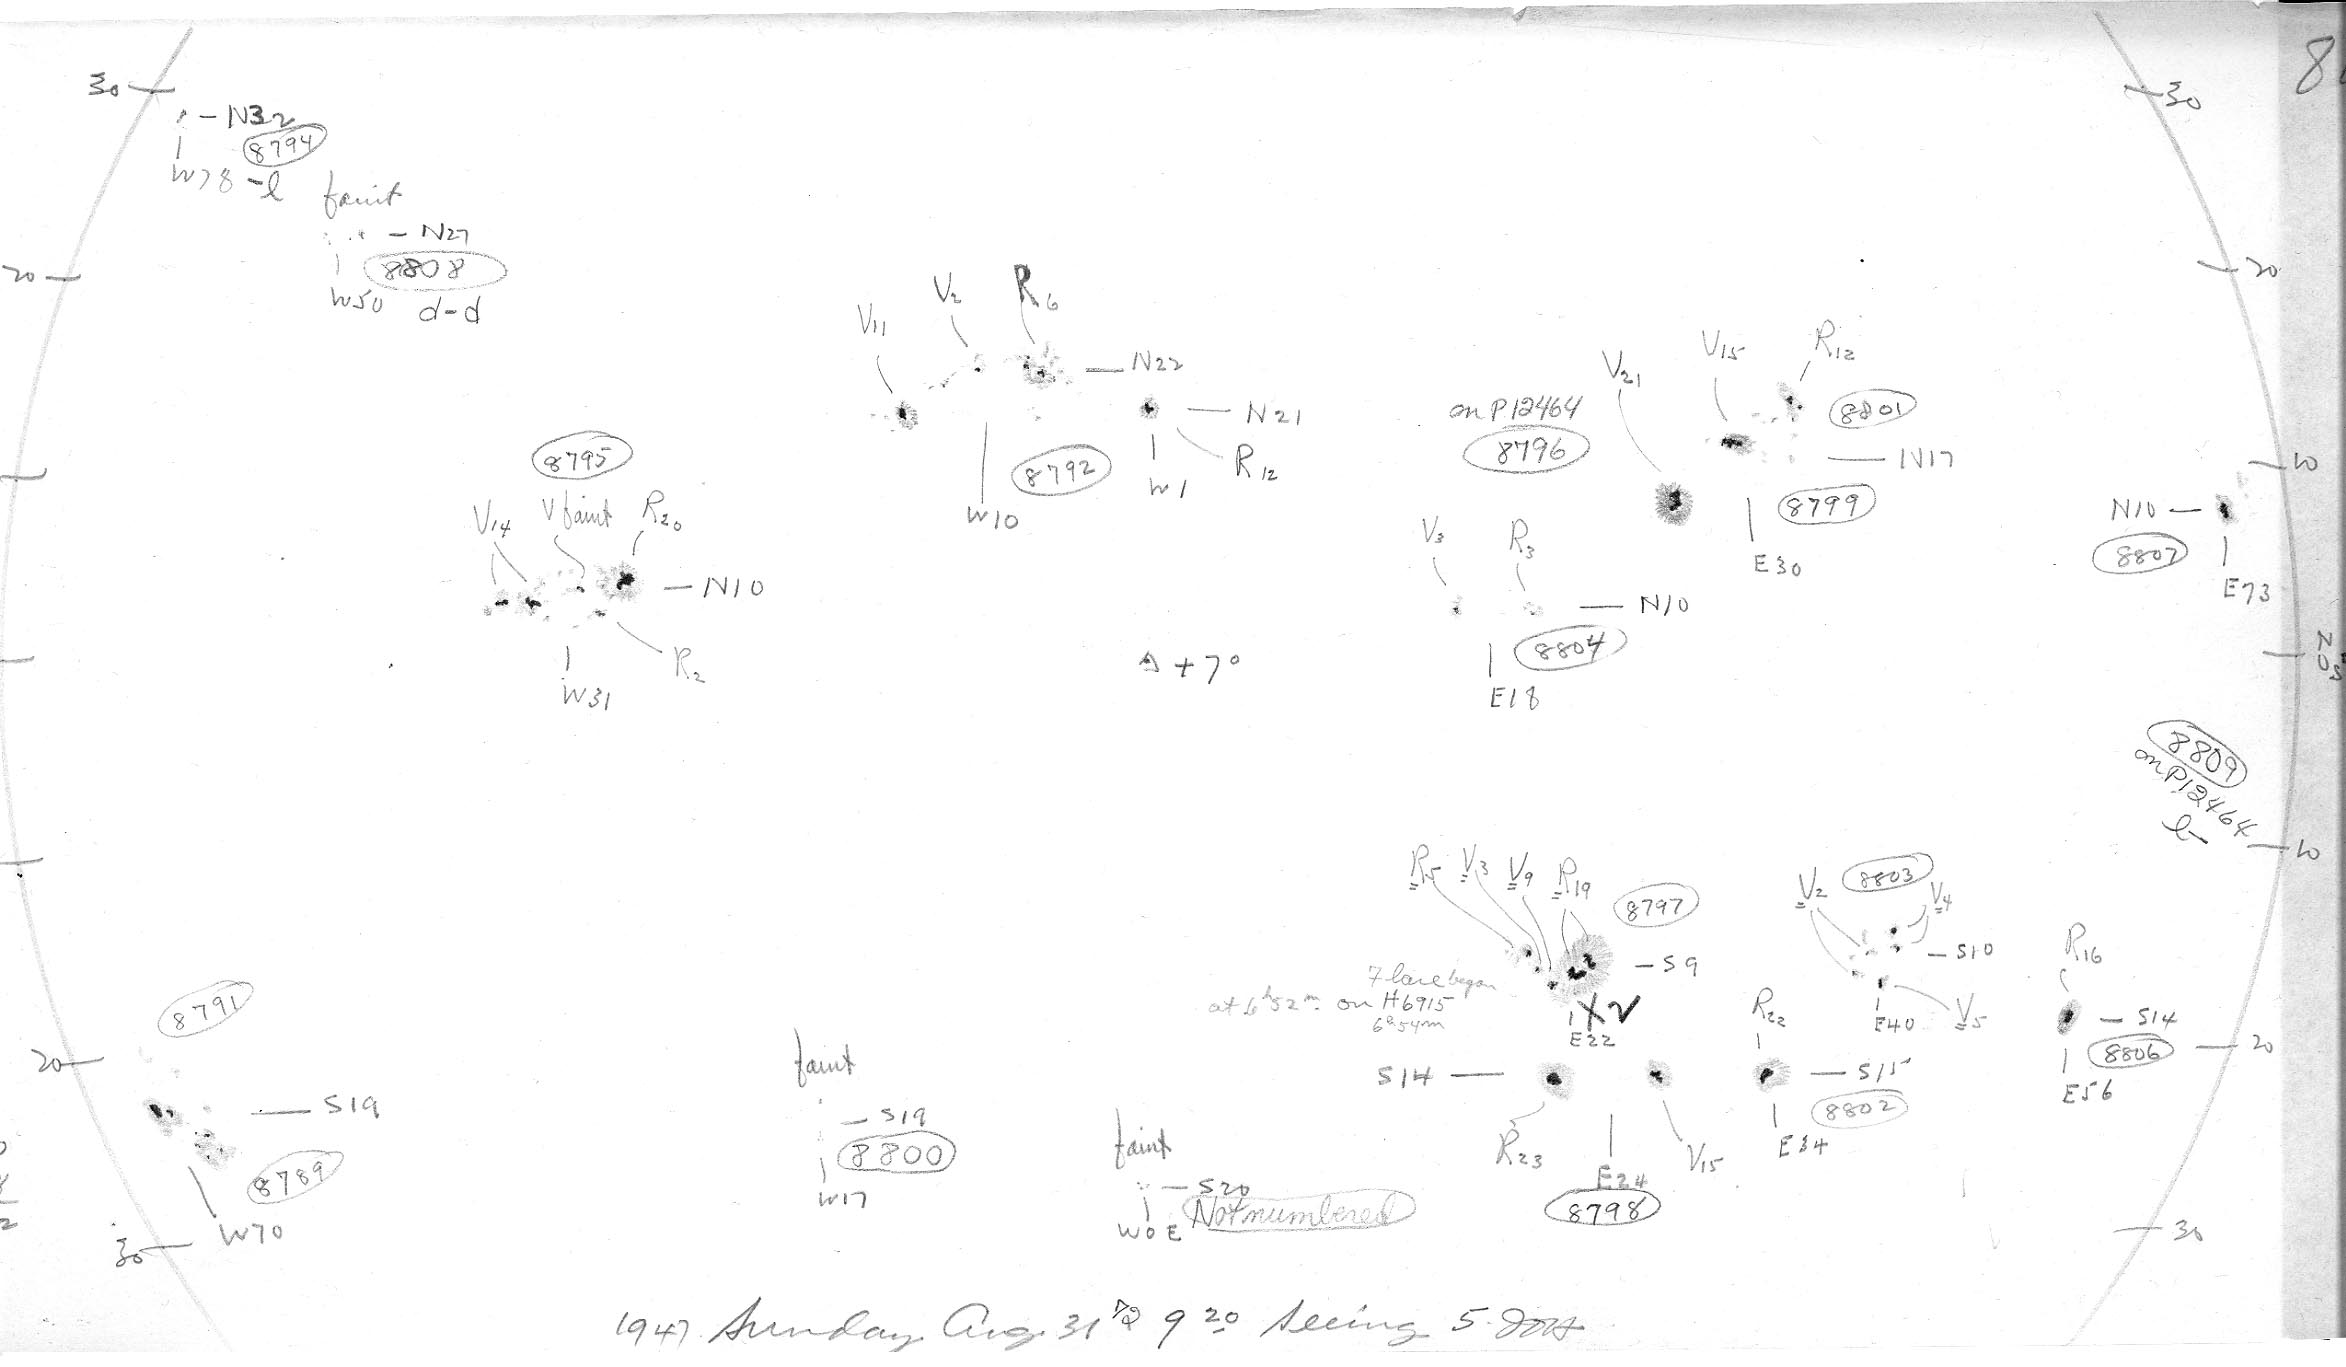 30
N32
8794
W78 -l
faint
N27
8808
W50 d-d
20
30
20
V11
V2
R6
N22
N21
R12
W1
8792
W10
8795
V14
V faint
R20
N10
R2
W31
on P12464
8796
V21
V15
R12
8801
N17
8799
E30
V3
R3
N10
8804
E18
10
N10
8807
E73
+7°
N
0
S
8809
on P12464
l-
10
R5
V3
V9
R19
8797
S9
Flare began
at 6h52m on H6915
6h54m
E22
V2
8803
V4
S10
E40
V5
R16
S14
8806
E56
20
R22
S15
8802
E34
S14
R23
E24
V15
8798
8791
20
S19
8789
W70
30
faint
S19
8800
W17
faint
S20
W0E
Not numbered
30
1947 Sunday Aug. 31 9 20 Seeing 5